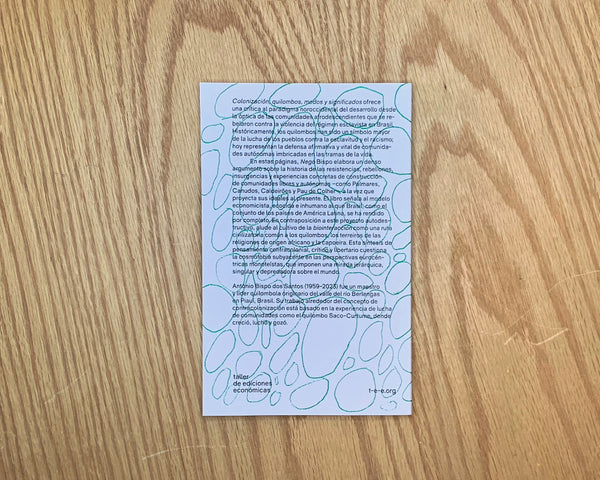 Colonización, quilombos, modos y significados ofrece
una crítica al paradigma noroccidental del desarrollo desde
la óptica de las comunidades afrodescendientes que se re-
belaron contra la violencia del régimen esclavista en Brasil.
Históricamente, los quilombos han sido un símbolo mayor
de la lucha de los pueblos contra la esclavitud y el racismo;
hoy representan la defensa afirmativa y vital de comunida-
des autónomas imbricadas en las tramas de la vida.
En estas páginas, Nego Bispo elabora un denso
argumento sobre la historia de las resistencias, rebeliones,
insurgencias y experiencias concretas de construcción
de comunidades libres y autónomas –como Palmares,
Canudos, Caldeirões y Pau de Colher–, a la vez que
proyecta sus ideales al presente. El libro señala al modelo
economicista, ecocida e inhumano al que Brasil, como el
conjunto de los países de América Latina, se ha rendido
por completo. En contraposición a este proyecto autodes-
tructivo, alude al cultivo de la biointeracción como una ruta
civilizatoria común a los quilombos, los terreiros de las
religiones de origen africano y la capoeira. Esta síntesis da
pensamiento contracolonial, crítico y libertario cuestiona
la cosmofobia subyacente en las perspectivas eurocén-
tricas monoteístas, que imponen una mirada jerárquica,
singular y depredadora sobre el mundo.
Antônio Bispo dos Santos (1959-2023) fue un maestro
y líder quilombola originario del valle del río Berlengas
en Piauí, Brasil. Su trabajo alrededor del concepto de
contracolonización está basado en la experiencia de lucha
de comunidades como el quilombo Saco-Curtume, donde
creció, luchó y gozó.
taller
de ediciones
económicas
t-e-e.org